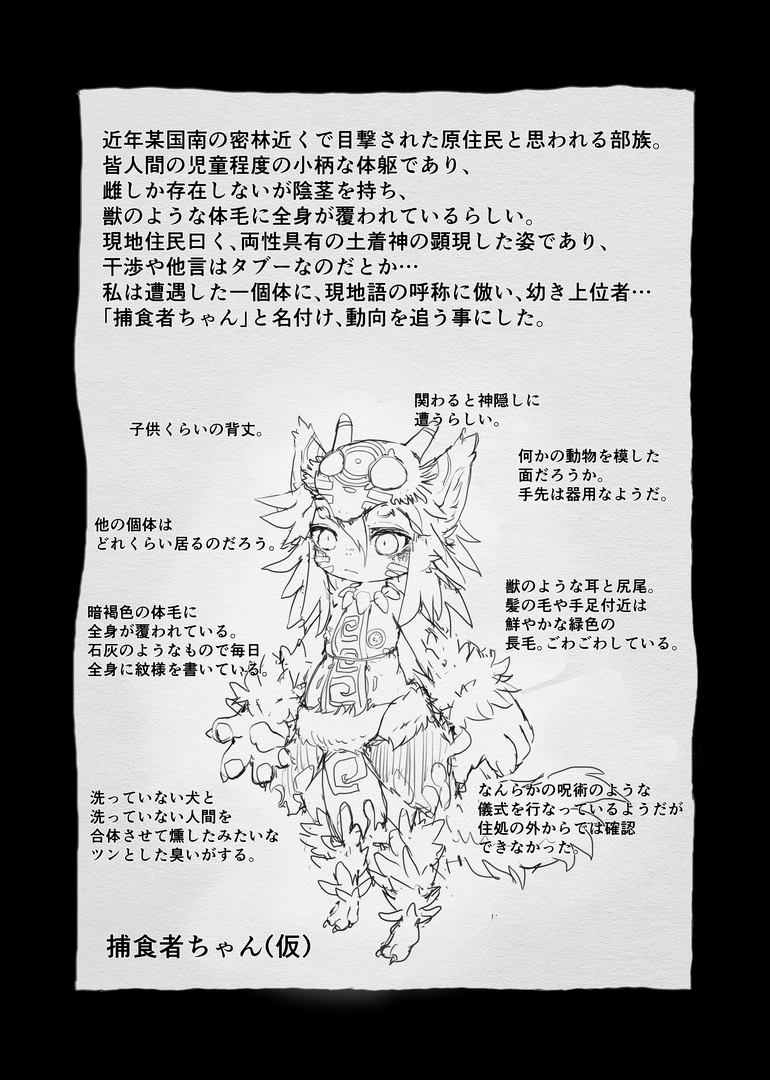 近年某国南の密林近くで目撃された原住民と思われる部族。
皆人間の児童程度の小柄な体躯であり、
雌しか存在しないが陰茎を持ち、
獣のような体毛に全身が覆われているらしい。
現地住民曰く、両性具有の土着神の顕現した姿であり、
干渉や他言はタブーなのだとか…
私は遭遇した一個体に、現地語の呼称に倣い、幼き上位者…
「捕食者ちゃん」と名付け、動向を追う事にした。
関わると神隠しに
遭うらしい。
子供くらいの背丈。
何かの動物を模した
面だろうか。
手先は器用なようだ。
他の個体は
どれくらい居るのだろう。
獣のような耳と尻尾。
髪の毛や手足付近は
鮮やかな緑色の
長毛。ごわごわしている。
暗褐色の体毛に
全身が覆われている。
石灰のようなもので毎日
全身に紋様を書いている。
なんらかの呪術のような
儀式を行なっているようだが
住処の外からでは確認
できなかった。
洗っていない犬と
洗っていない人間を
合体させて燻したみたいな
ツンとした臭いがする。
捕食者ちゃん(仮)